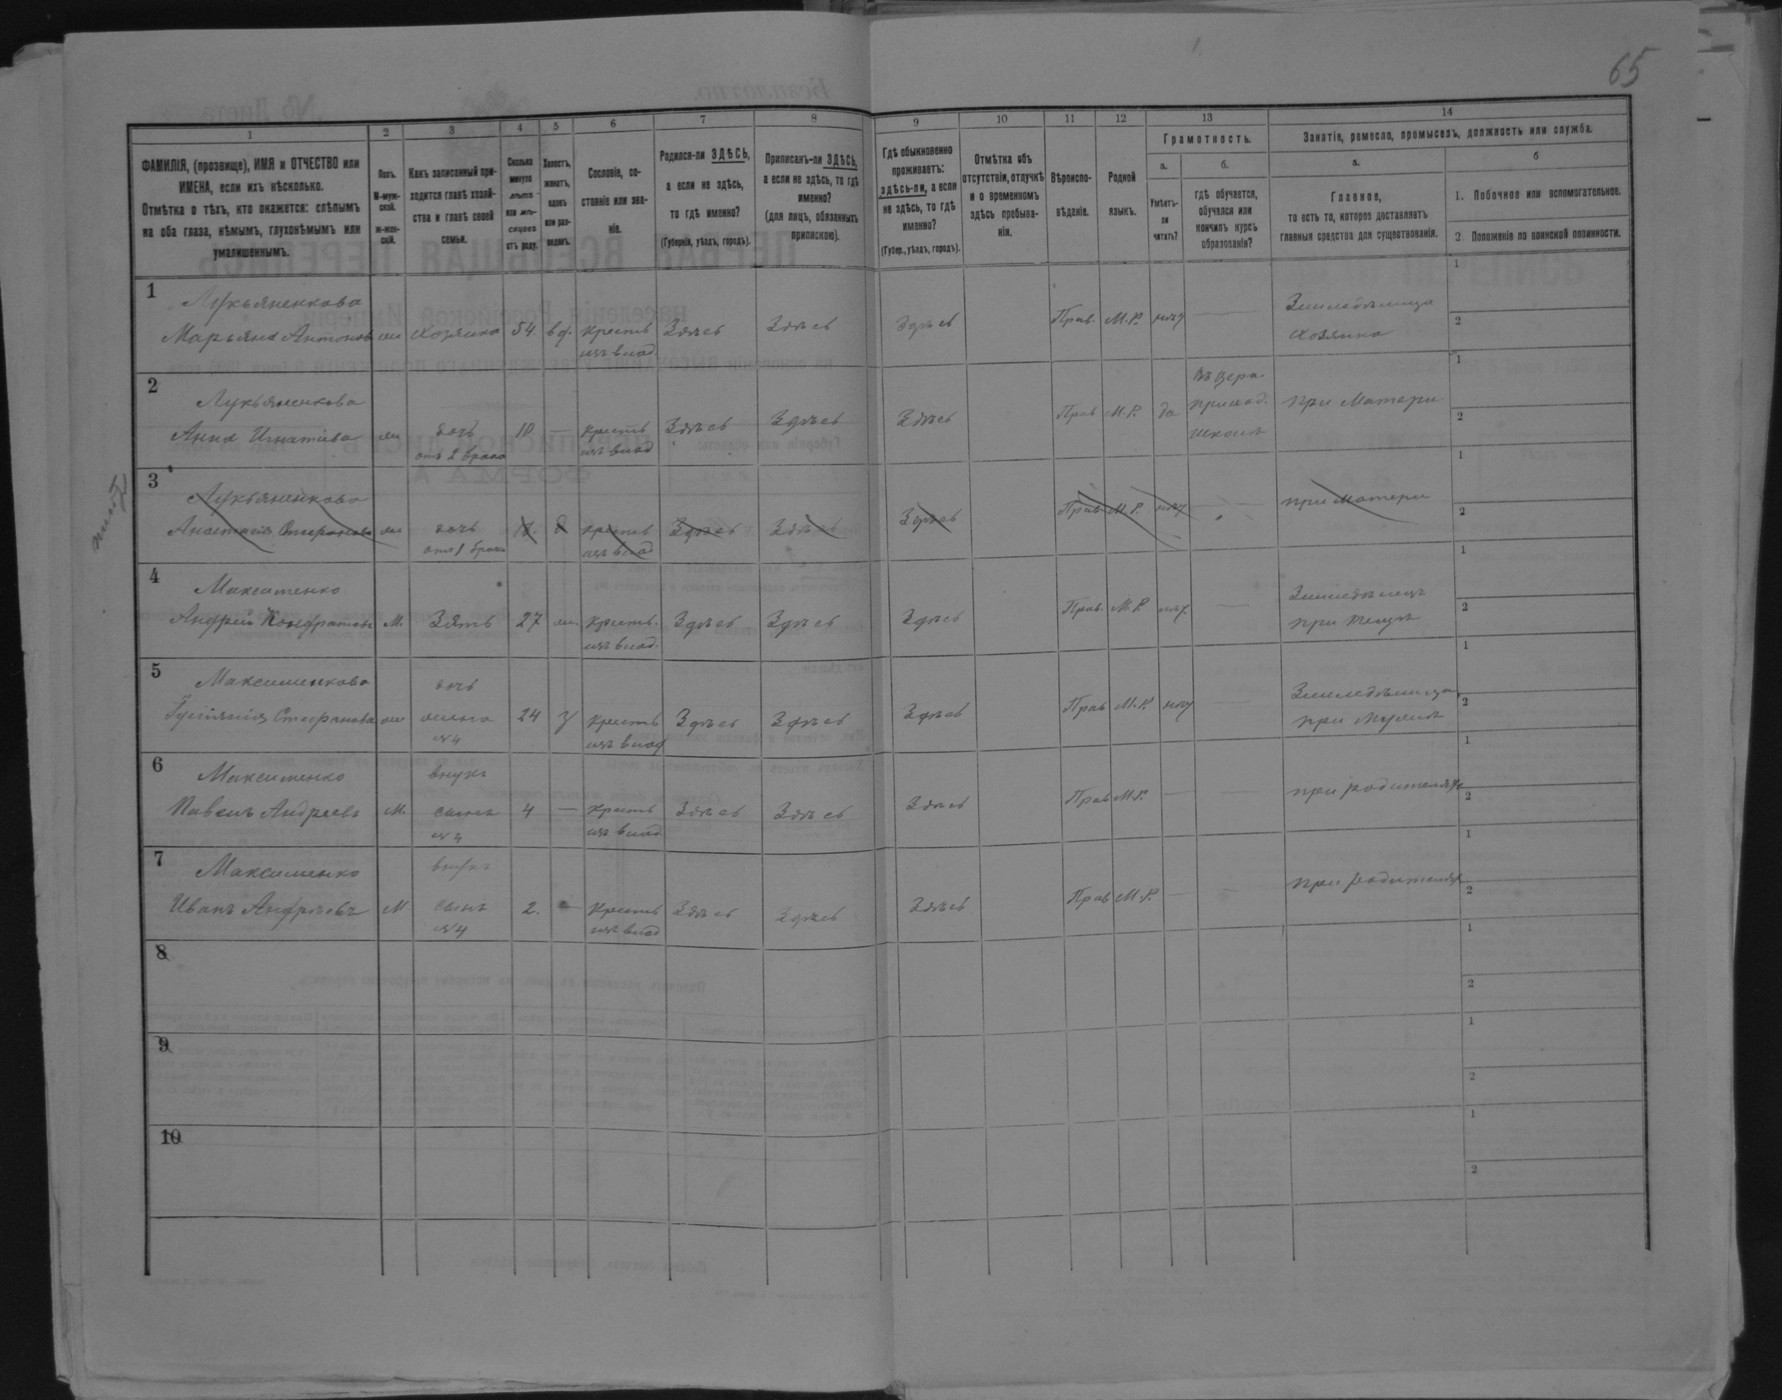 65
1
2
3
4
5
6
7
8
9
10
11
12
13
14
ФАМИЛІЯ, (прозвище), ИМЯ и ОТЧЕСТВО или
ИМЕНА, если ихъ нѣсколько.
Отмѣтка о тѣхъ, кто окажется: слѣпымъ
на оба глаза, нѣмымъ, глухонѣмымъ или
умалишеннымъ.
Полъ.
М-муж-
ской.
ж-жен-
скій.
Какъ записанный при-
ходится главѣ хозяй-
ства и главѣ своей
семьи.
Сколько
минуло
лѣтъ
или мѣ-
сяцевъ
отъ роду.
Холостъ,
женатъ,
вдовъ
или раз-
веденъ.
Сословіе, со-
стояніе или зва-
ніе.
Родился-ли ЗДѢСЬ,
а если не здѣсь,
то гдѣ именно?
(Губернія, уѣздъ, городъ).
Приписанъ-ли ЗДѢСЬ,
а если не здѣсь, то гдѣ
именно?
(для лицъ, обязанныхъ
припискою).
Гдѣ обыкновенно
проживаетъ:
здѣсь-ли, а если
не здѣсь, то гдѣ
именно?
(Губер., уѣздъ, городъ).
Отмѣтка объ
отсутствіи, отлучкѣ
и о временномъ
здѣсь пребыва-
ніи.
Вѣроиспо-
вѣданіе.
Родной
языкъ.
Грамотность.
а.
Умѣетъ-
ли
читать?
б.
гдѣ обучается,
обучался или
кончилъ курсъ
образованія?
Занятіе, ремесло, промыселъ, должность или служба.
а.
Главное,
то есть то, которое доставляетъ
главныя средства для существованія.
б
1. Побочное или вспомогательное.
2. Положеніе по воинской повинности.
1
Лукьяненкова
Марьяна Антонов жн хозяйка 54 вд. крестъ Здѣсь Здѣсь Здѣсь Прав. М.Р. нѣт
изъ влад
Земледѣлица
хозяйка
1
2
2
Лукьяненкова
Анна Игнатіева жн дочь 10 — крестъ Здѣсь Здѣсь Здѣсь Прав М.Р. да
отъ 2 брака
изъ влад
приход.
школѣ
при Матери
1
2
3
Лукьяненкова
Анастасія Стефанова жн дочь 18. крестъ Здѣсь Здѣсь Здѣсь Прав М.Р. нѣт
отъ 1 брака
изъ влад
при матери
1
2
4
Максименко
Андрей Кондратов М. Зять 27 жн. крестъ. Здѣсь Здѣсь Здѣсь Прав. М.Р нѣт. —
изъ влад.
Земледѣлецъ
при тещѣ
1
2
5
Максименкова
Стефанова жн дочь жена № 4 24 З крестъ Здѣсь Здѣсь Здѣсь Прав М.Р. нѣт —
изъ влад
Земледѣлица
при мужѣ
1
2
6
Максименко
Павелъ Андреевъ М. внукъ сынъ № 4 4 — крестъ Здѣсь Здѣсь Здѣсь Прав М.Р. — —
изъ влад
при родителях
1
2
7
Максименко
Иванъ Андреевъ М внукъ сынъ № 4 2. — крестъ Здѣсь Здѣсь Здѣсь Прав М.Р. — —
изъ влад
при родителях
1
2
8
1
2
9
1
2
10
1
2